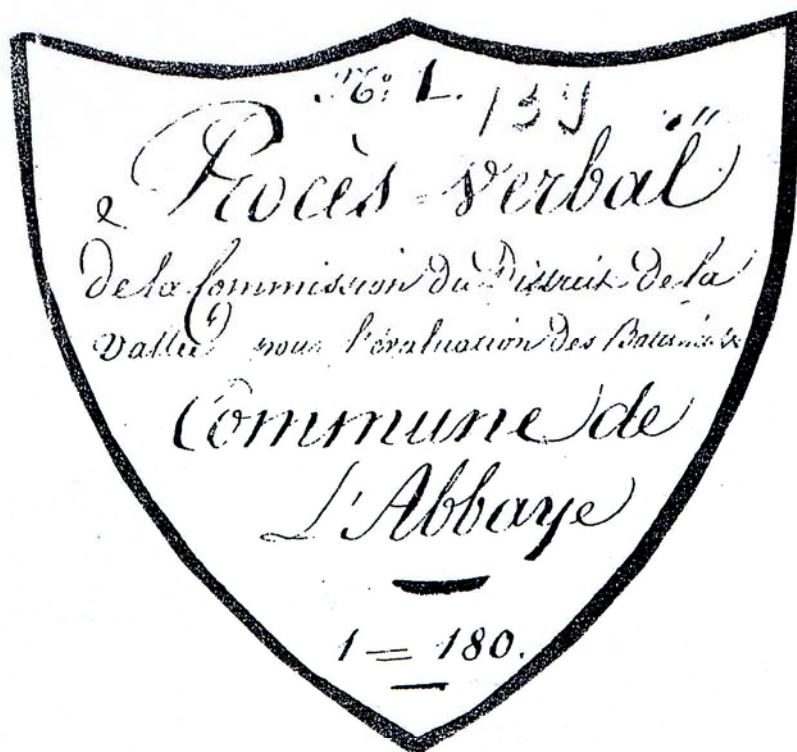 N.º 1. 139
Procès-verbal
de la Commission du District de la
Vallée pour l'évaluation des Batimens
Commune de
L'Abbaye
1 = 180.